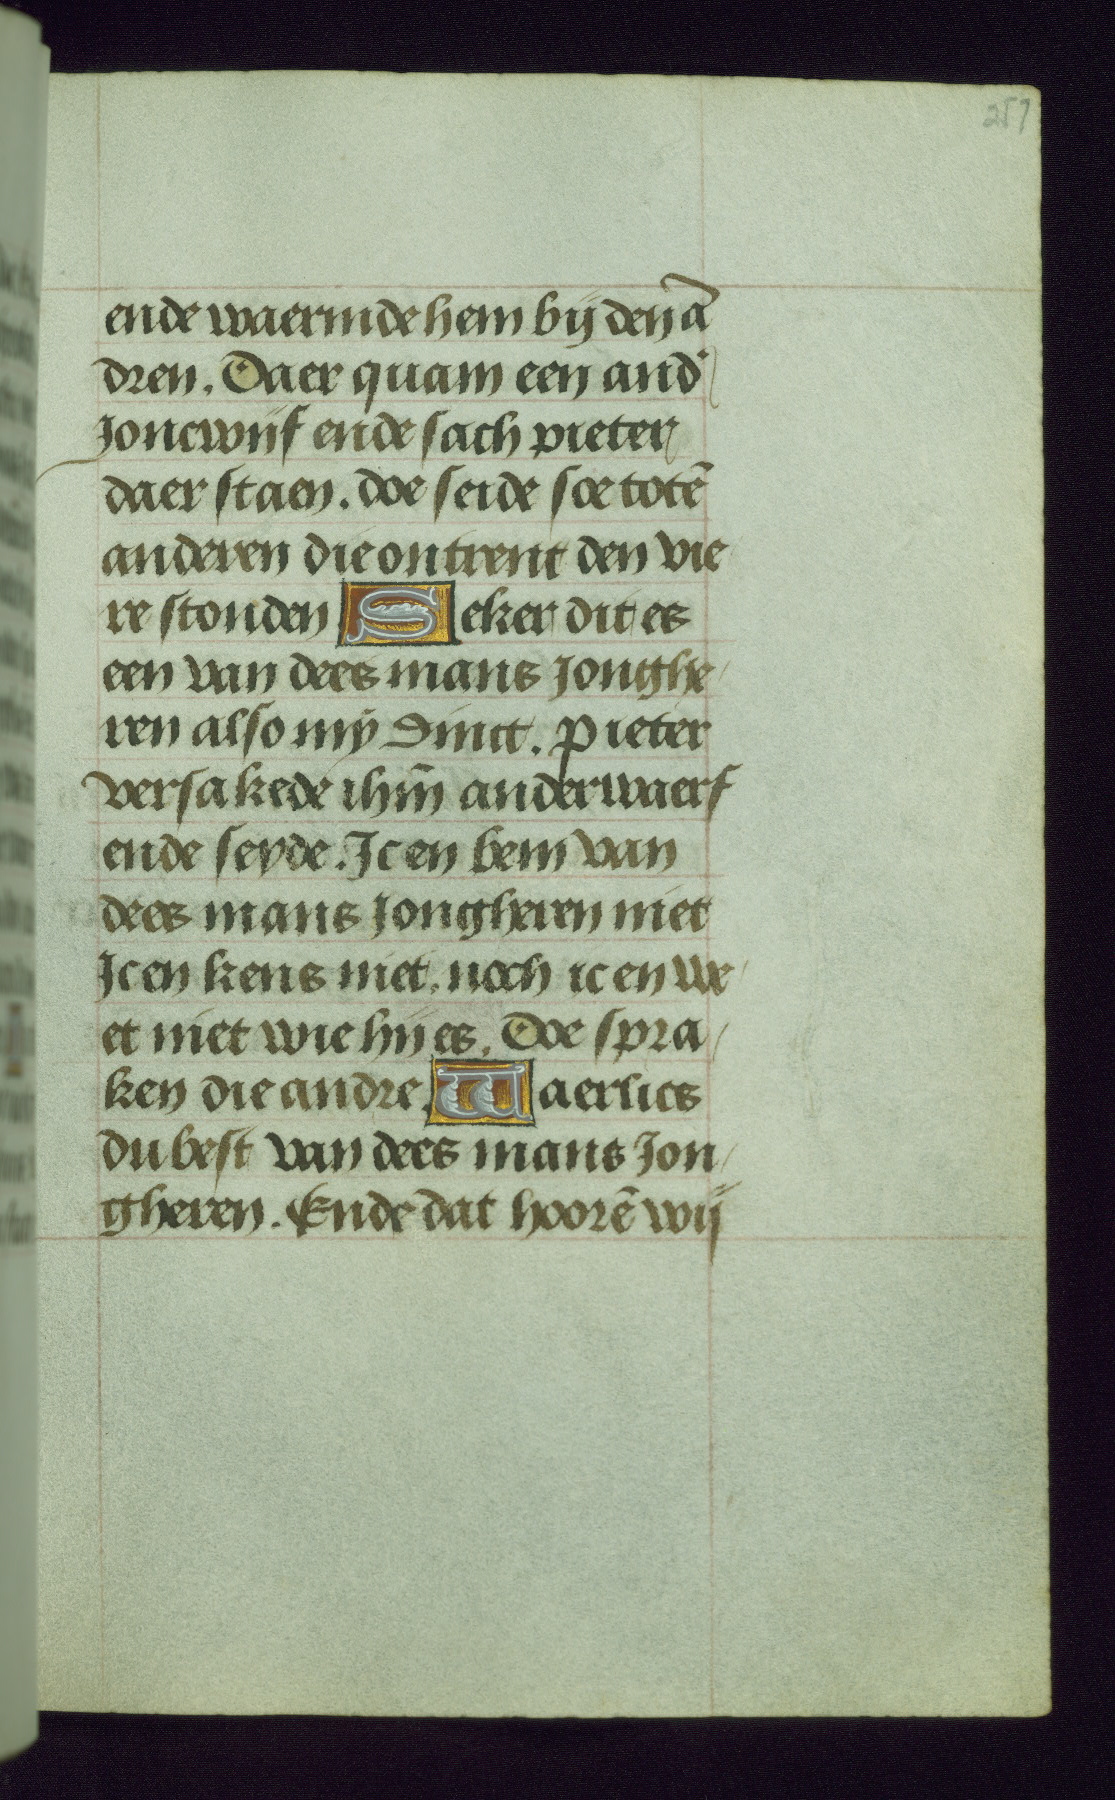 257
ende waermde hem bij den ā
dren. Daer quam een and'
Joncwijf ende sach pieter
daer staen. doe seide soe totē
anderen die ontrent den vie
re stonden Seker dit es
een van dees mans Jonghe
ren also mÿ dinct. Pieter
versakede ihm̄ anderwaerf
ende seyde. Jc en bem van
dees mans Jongheren niet
Jc en kens niet. noch ic en we
et niet wie hij es. Doe spra
ken die andre. Waerlics
du best van dees mans Jon
gheren. Ende dat hoorē wij